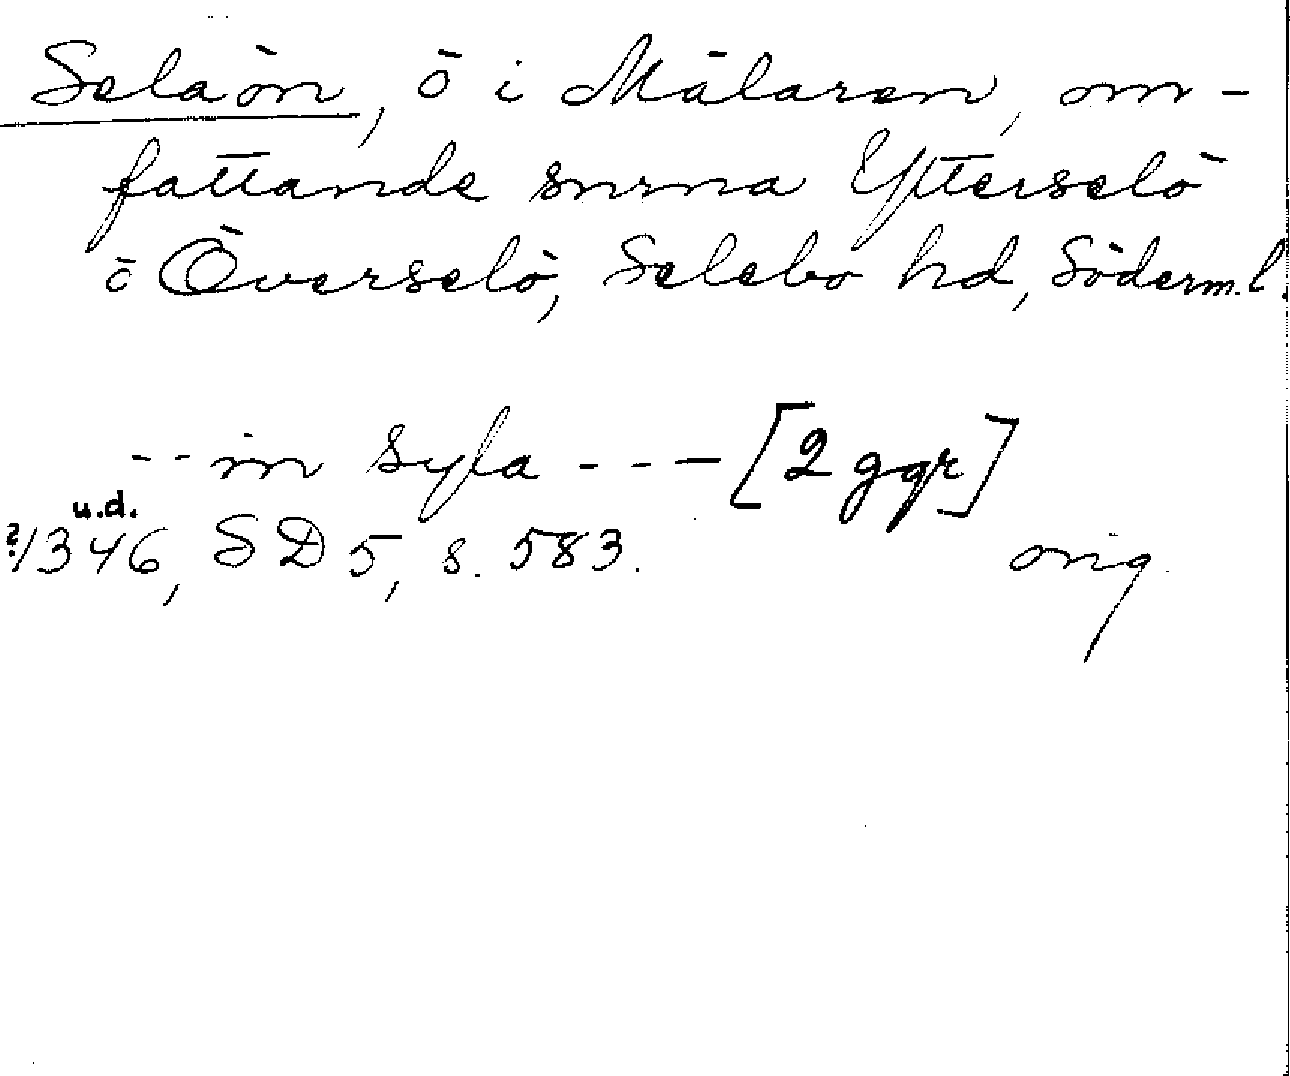 Selaön, ö i Mälaren, om-
fattande snrna Ytterselö
o Överselö, Selebo hd, Söderm. l.
-- in syla --- [2 ggr]
u.d.
?/1346, SD 5, s. 583. orig.